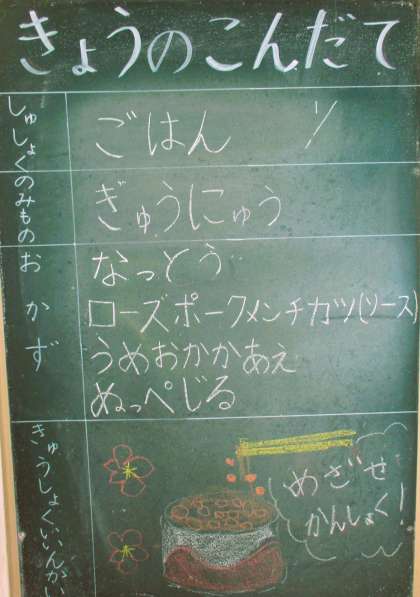 きょうのこんだて
しゅしょく
ごはん
のみもの
ぎゅうにゅう
おかず
なっとう
ローズポークメンチカツ(ソース)
うめおかかあえ
ぬっぺじる
きゅうしょくいいんかい
めざせ
かんしょく!